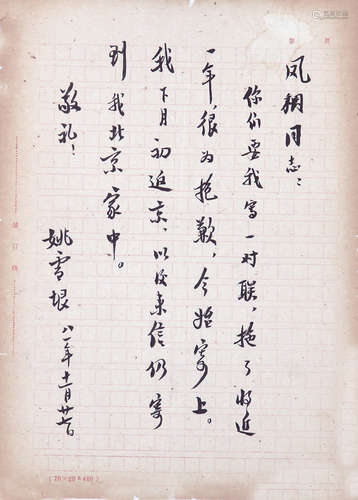 凤翱同志：
你们要我写一对联，拖了将近
一年，很为抱歉，今始寄上。
我下月初返京，以后来信仍寄
到我北京家中。
敬礼！
姚雪垠 八一年十一月廿七日
(20×20=400)